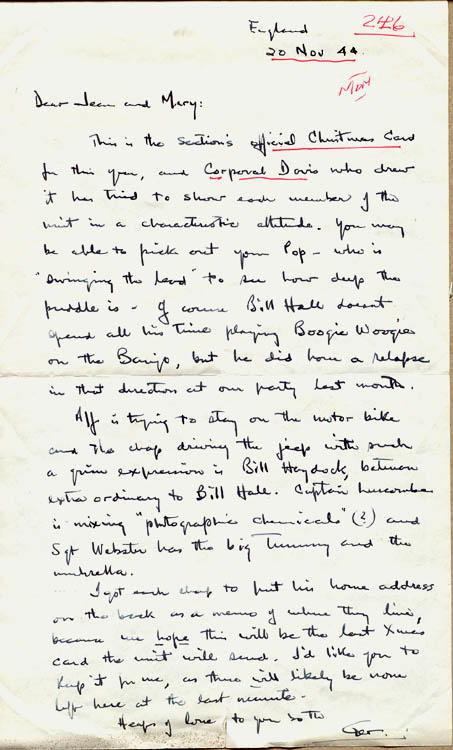 England
246
20 Nov 44.
MDM
Dear Jean and Mary:
This is the section's official Christmas Card
for this year, and Corporal Davis who drew
it has tried to show each member of the
unit in a characteristic attitude. You may
be able to pick out your Pop - who is
"swinging the lead" to see how deep the
puddle is - Of course Bill Hall doesnt
spend all his time playing Boogie Woogie
on the Banjo, but he did have a relapse
in that direction at our party last month.
Alf is trying to stay on the motor bike
and the chap driving the jeep with such
a grim expression is Bill Haydock, batman
extra ordinary to Bill Hall. Captain Luscombe
is mixing "photographic chemicals" (?) and
Sgt Webster has the big Tummy and the
umbrella.
I got each chap to put his home address
on the back as a memo of where they live,
because we hope this will be the last Xmas
card the unit will send. I'd like you to
keep it for me, as there will likely be none
left here at the last minute.
Heaps of love to you both